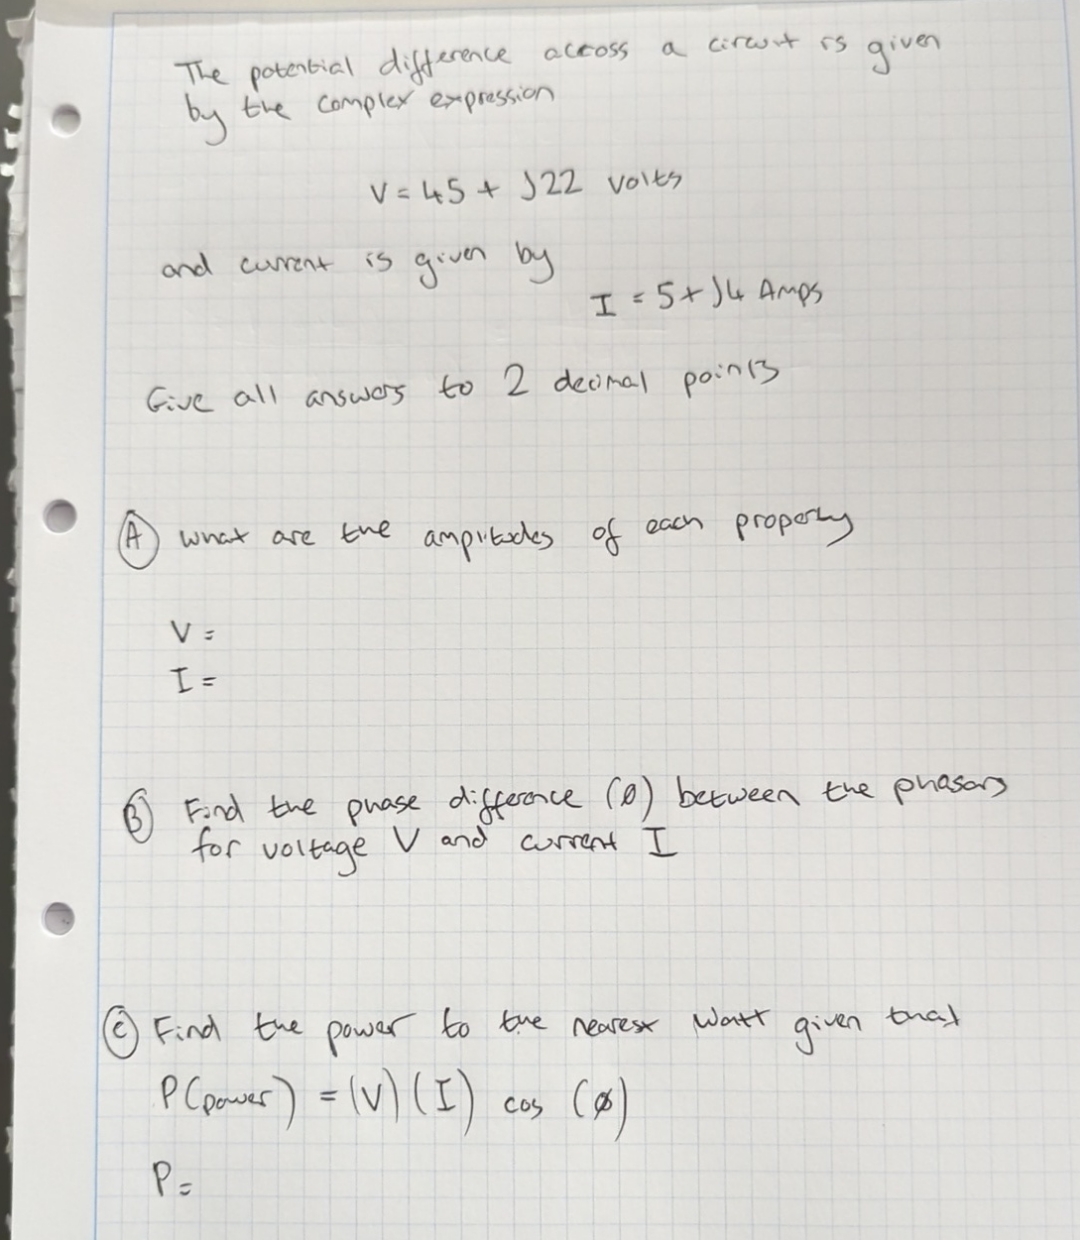 The potential difference across a circuit is given
by the complex expression
V = 45 + J22 volts
and current is given by
I = 5 + J4 Amps
Give all answers to 2 decimal points
(A) what are the amplitudes of each property
V =
I =
(B) Find the phase difference (ø) between the phasors
for voltage V and current I
(C) Find the power to the nearest Watt given that
P(power) = (V) (I) cos (ø)
P =